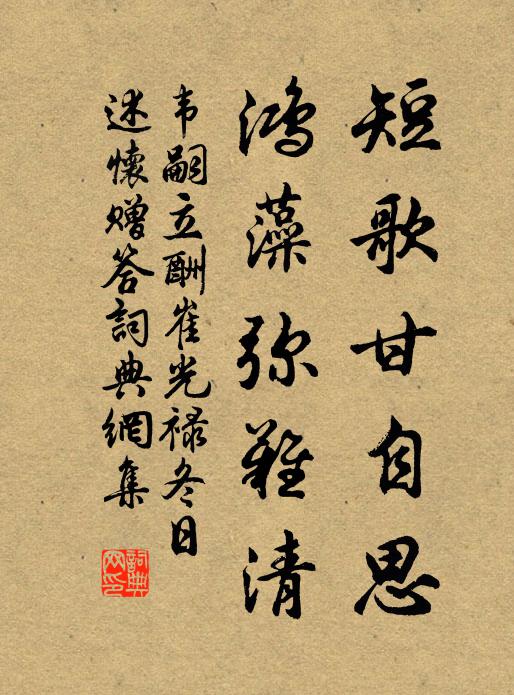 短歌甘自思
鴻藻弥難清
韦嗣立酬崔光禄冬日
述懷贈答詞典網集
詞典网印